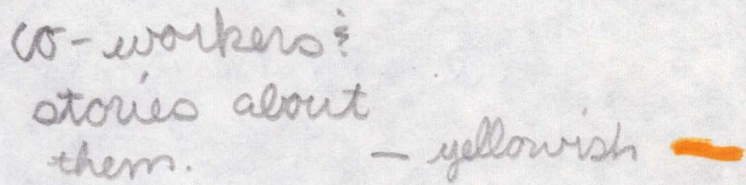 co-workers &
stories about
them. — yellowish